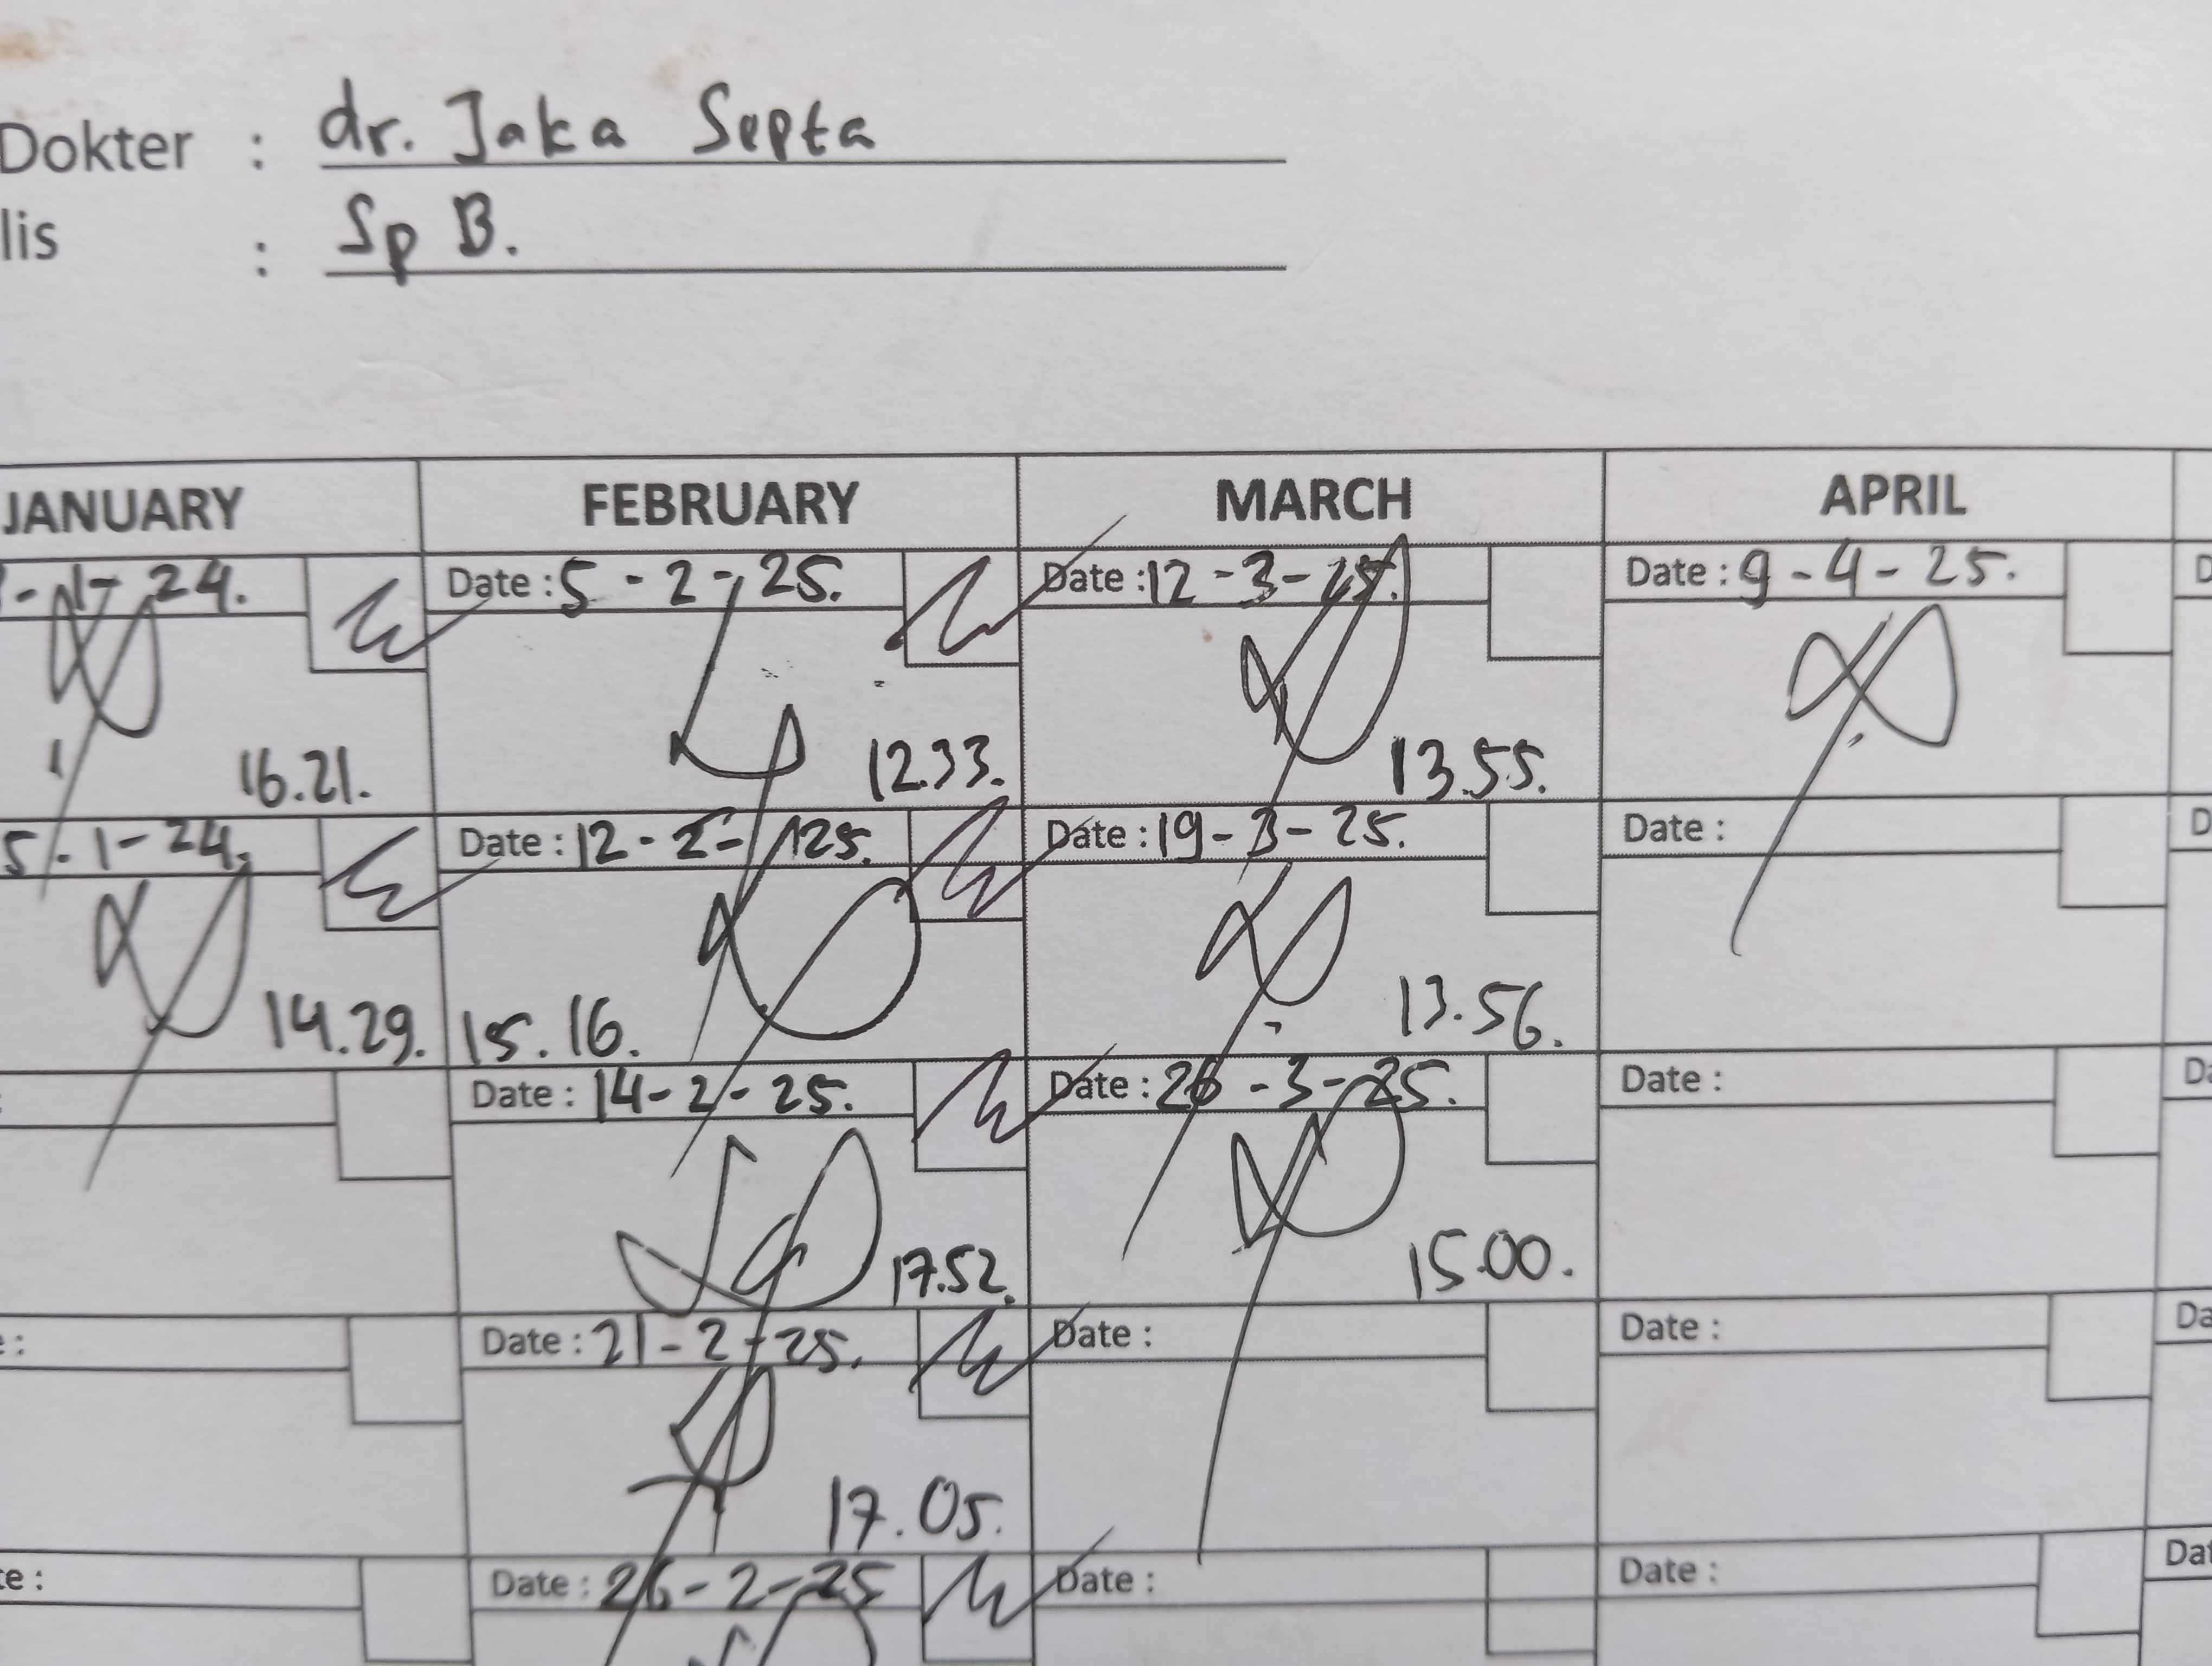 Dokter : dr. Jaka Septa
lis : Sp B.
JANUARY FEBRUARY MARCH APRIL
-1-24. Date : 5-2-25. Date : 12-3-25. Date : 9-4-25. D
16.21. 12.33. 13.55.
5-1-24. Date : 12-2-25. Date : 19-3-25. Date : D
14.29. 15.16. 13.56.
: Date : 14-2-25. Date : 26-3-25. Date : Da
17.52. 15.00.
e : Date : 21-2-25. Date : Date : Da
17.05.
te : Date : 26-2-25 Date : Date : Dat